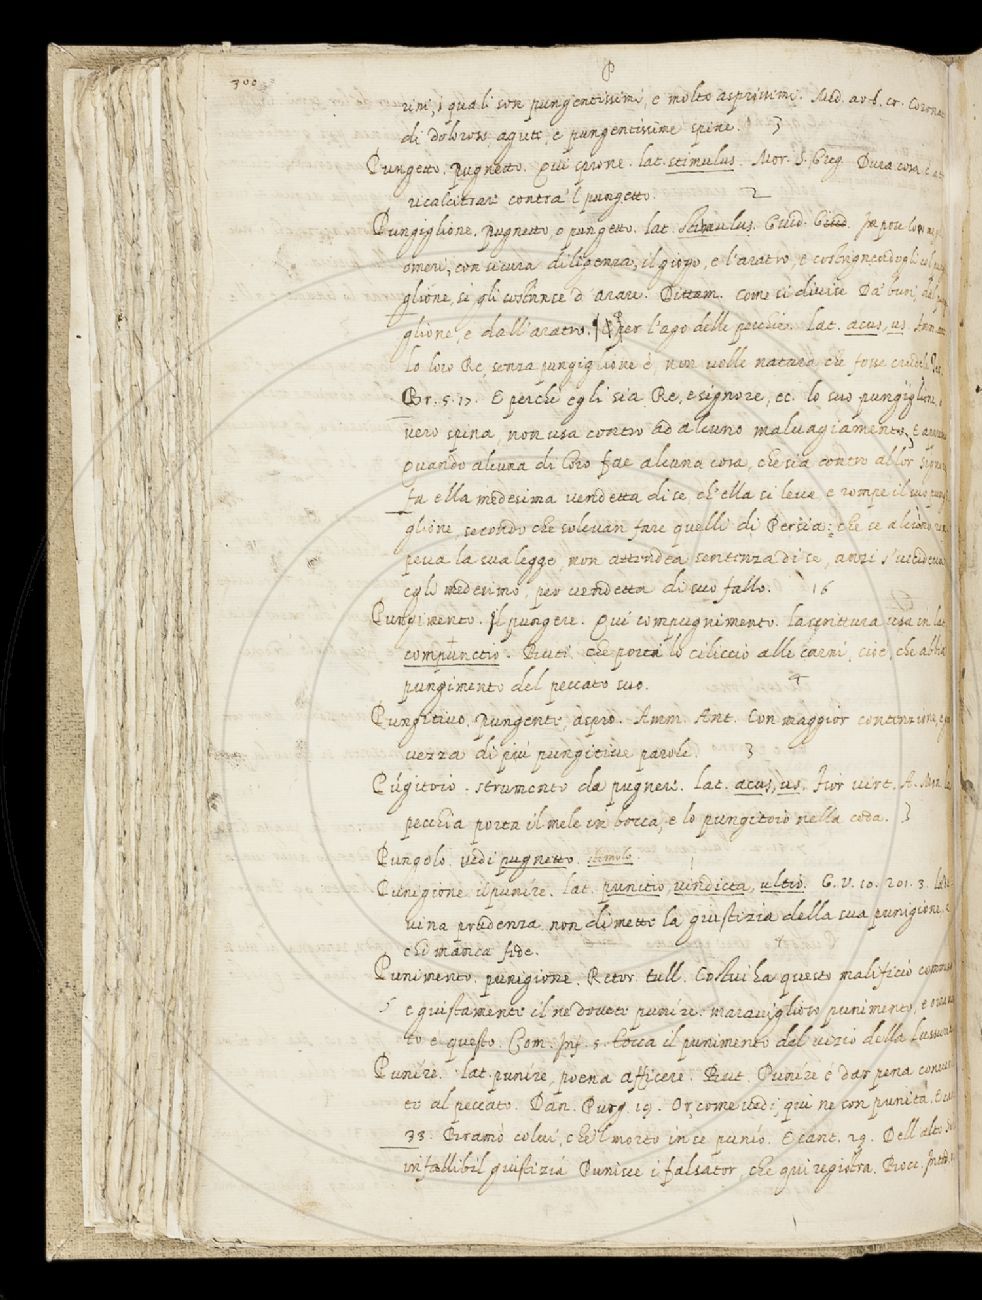 300
P
rini, i quali son pungentissimi, e molto asprissimi. Med. arb. cr. Corona
di dolorosi, agute, e pungentissime spine. 3
Pungetto. Pugnetto. Qui sprone. lat. stimulus. Mor. S. Greg. Dura cosa è a te
ricalcitrare contra 'l pungetto. 2
Pungiglione, Pugnetto, o pungetto. lat. stimulus. Guid. Guid. Impose loro negli
omeri, con sicura diligenza, il giogo, e l'aratro, e costrignendogli col pungi
glione, sì gli costrinse d'arare. Dittam. come si divise Da' buoi, dal pungi
glione, e dall'aratro. per l'ago delle pecchie. lat. acus, us.
lo loro Re, senza pungiglione è non volle natura, che fosse crudele.
Br. 5. 17. E perchè egli sia Re, e signore, ec. lo suo pungiglione, o
vero spina, non usa contro ad alcuno malvagiamente. E
quando alcuna di loro fae alcuna cosa, che sia contro al lor signore
fa ella medesima vendetta di se, ch'ella si leva e rompe il suo pungi
glione, secondo che solevan fare quelli di Persia: che se alcuno rom
peva la sua legge, non attendea sentenza di se, anzi s'uccidea
egli medesimo, per vendetta di suo fallo. 16
Pungimento. Il pungere. Qui compugnimento. la scrittura usa in lat.
compunctio. But. Che porta lo ciliccio alle carni, cioè, che abbia
pungimento del peccato suo. 4
Pungitivo, Pungente, aspro. Amm. Ant. Con maggior contenzione, e
vezza di più pungitive parole. 3
Púgitoio. strumento da pugnere. lat. acus, us. Fior virt. A. Mon. la
pecchia porta il mele in bocca, e lo pungitoio nella coda. 3
Pungolo vedi pugnetto. stimolo
Punigione il punire. lat. punitio, vindicta, ultio. G. V. 10. 201. 3. la di
vina prudenza non dimette la giustizia della sua punigione, a
chi manca fede. 4
Punimento. punigione. Retor. tull. Costui ha questo malificio commesso
5 e giustamente il ne dovete punire. maraviglioso punimento, e
to è questo. Com. Inf. 5. tocca il punimento del vizio della Lussuria
Punire. lat. punire, poena afficere. But. Punire è dar pena conveni
to al peccato. Dan. Purg. 19. Or, come vedi, qui ne son punita. E cant.
33. Piramo colui, che'l morto in se punío. E cant. 29. Dell'alto Sire
infallibil giustizia Punisce i falsator, che qui registra. Bocc. Introd.